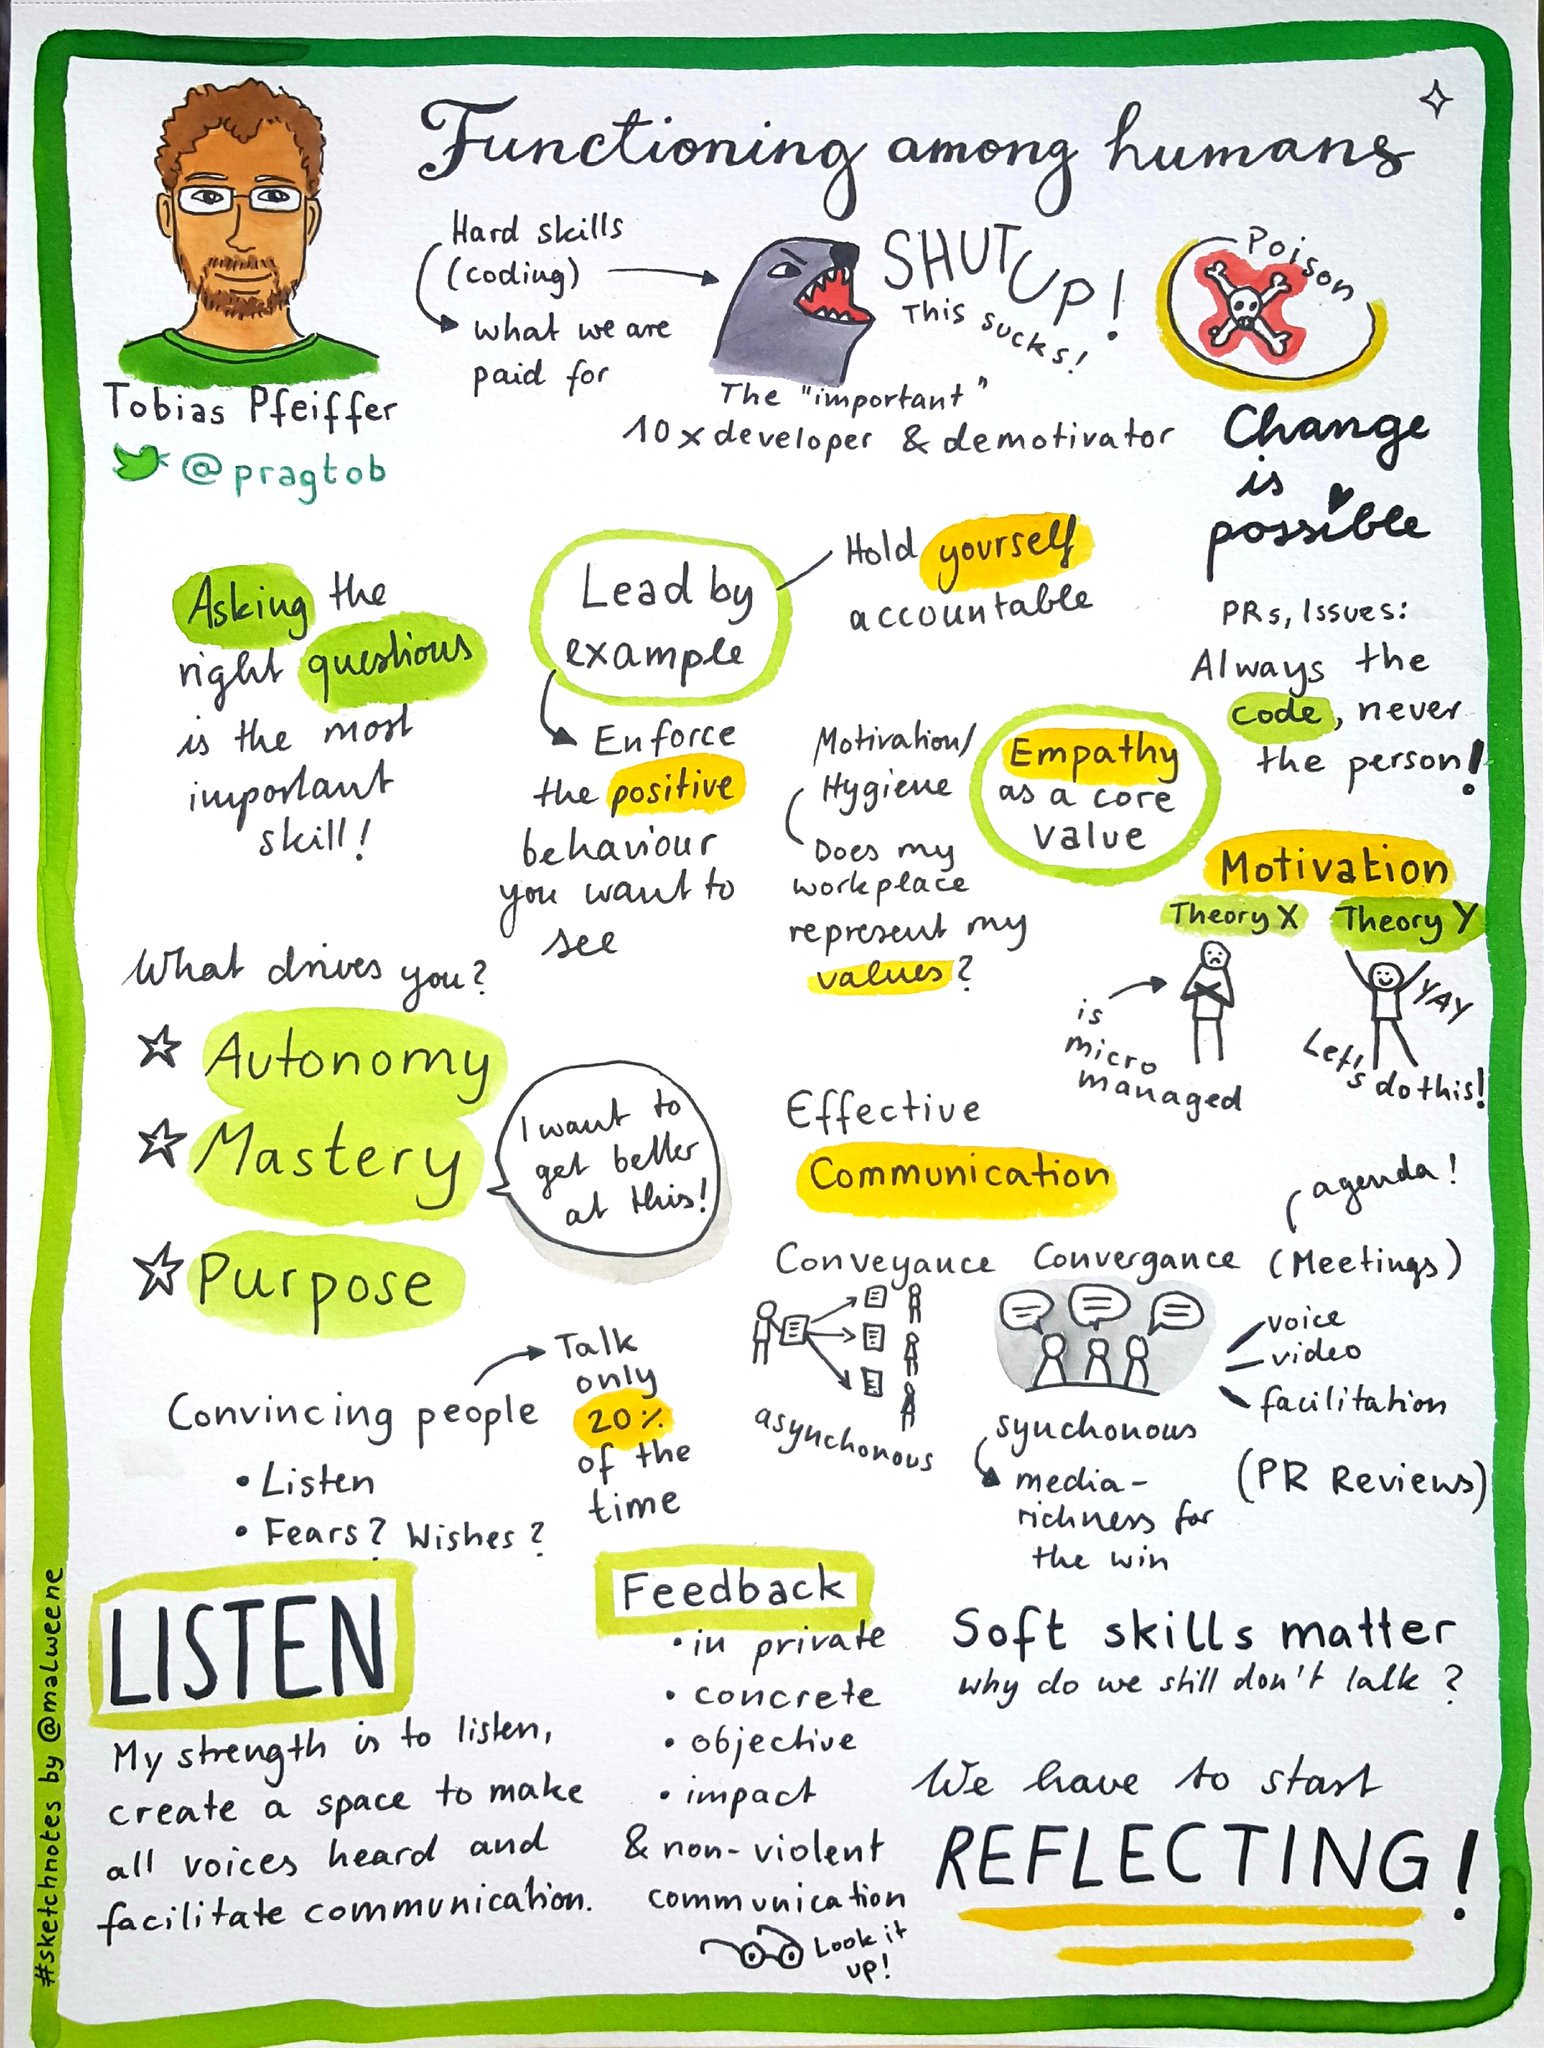 Functioning among humans
Tobias Pfeiffer
@pragtob
Hard skills
(coding)
what we are
paid for
SHUT UP!
This sucks!
The "important"
10x developer & demotivator
Poison
Change
is
possible
Asking the
right questions
is the most
important
skill!
Lead by
example
Hold yourself
accountable
Enforce
the positive
behaviour
you want to
see
PRs, Issues:
Always the
code, never
the person!
Motivation/
Hygiene
Does my
workplace
represent my
values?
Empathy
as a core
value
Motivation
Theory X
is
micro
managed
Theory Y
YAY
Let's do this!
What drives you?
Autonomy
Mastery
Purpose
I want to
get better
at this!
Effective
Communication
Conveyance
asynchonous
Convergance
(Meetings)
agenda!
voice
video
facilitation
synchonous
media-
richness for
the win
(PR Reviews)
Convincing people
• Listen
• Fears? Wishes?
Talk
only
20%
of the
time
LISTEN
My strength is to listen,
create a space to make
all voices heard and
facilitate communication.
Feedback
• in private
• concrete
• objective
• impact
& non-violent
communication
Look it
up!
Soft skills matter
why do we still don't talk?
We have to start
REFLECTING!
#sketchnotes by @malweene